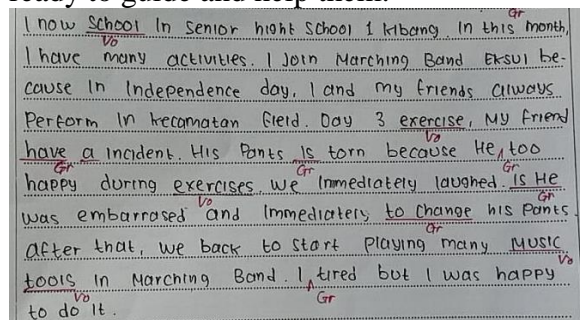 ready to guide and help them.
I now School In Senior hight School 1 Klbang. In this month,
Gr
Vo
I have many activities. I Join Marching Band Eksul be-
cause In Independence day, I and my friends always
Perform In kecamatan field. Day 3 exercise, My friend
Vo
have a Incident. His Pants is torn because He, too
Gr Gr Gr
happy during exercises. We Immediately laughed. Is He
Vo Gr
was embarrased and Immediately to change his Pants.
Gr
after that, we back to start playing many Music
tools In Marching Band. I tired but I was happy
Vo
Vo Gr
to do It.